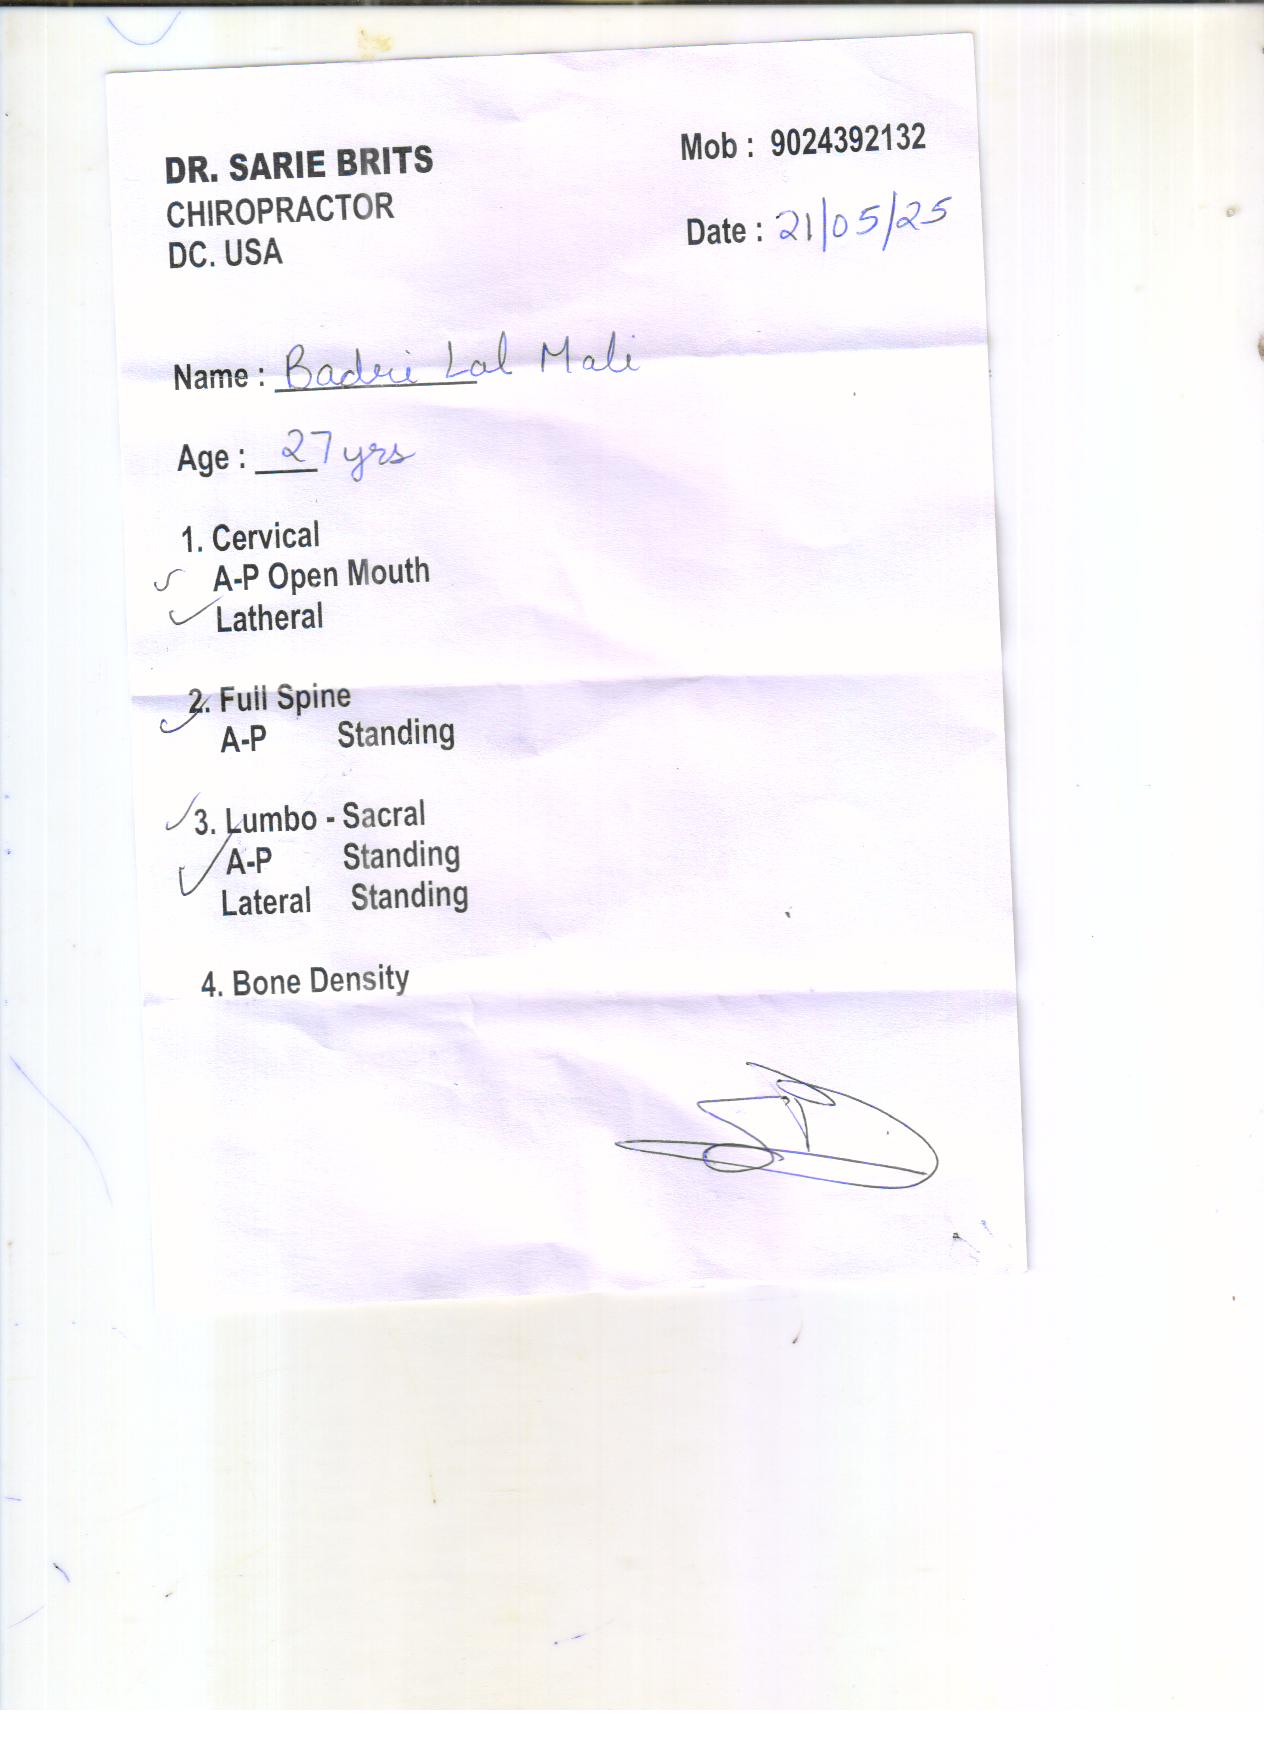 DR. SARIE BRITS
CHIROPRACTOR
DC. USA
Mob : 9024392132
Date : 21/05/25
Name : Badri Lal Mali
Age : 27 yrs
1. Cervical
✓ A-P Open Mouth
✓ Latheral
✓ 2. Full Spine
A-P Standing
✓ 3. Lumbo - Sacral
✓ A-P Standing
Lateral Standing
4. Bone Density